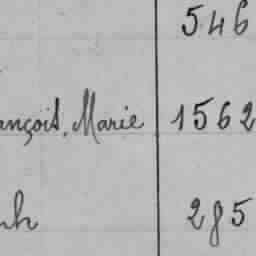 546
ançois, Marie 1562
285